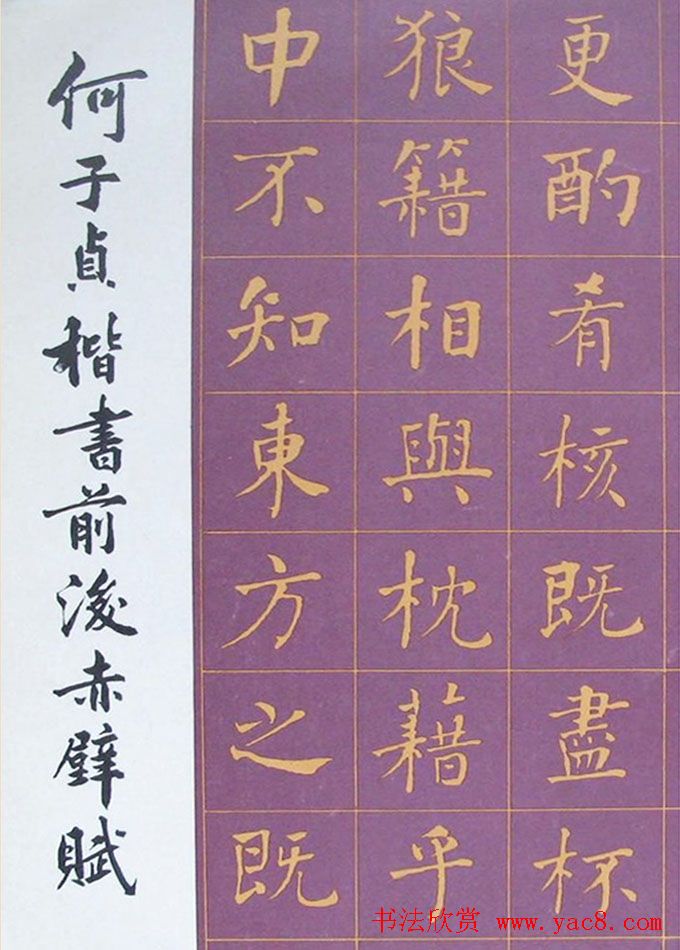 更酌肴核既盡杯
狼籍相與枕藉乎
中不知東方之既
何子貞楷書前後赤壁賦
书法欣赏 www.yac8.com